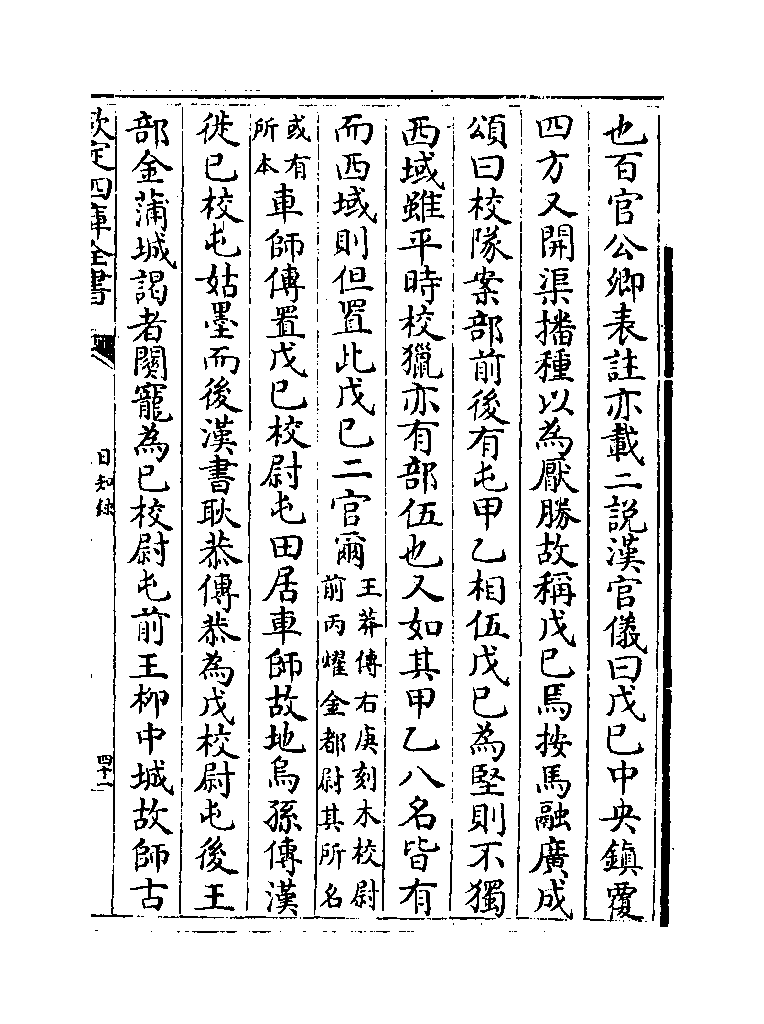 也百官公卿表註亦載二説漢官儀曰戊已中央鎮覆
四方又開渠播種以為厭勝故稱戊已馬按馬融廣成
頌曰校隊案部前後有屯甲乙相伍戊已為堅則不獨
西域雖平時校獵亦有部伍也又如其甲乙八名皆有
而西域則但置此戊已二官爾王莽傳右庚刻木校尉
前丙燿金都尉其所名
或有
所本車師傳置戊已校尉屯田居車師故地烏孫傳漢
徙已校屯姑墨而後漢書耿恭傳恭為戊校尉屯後王
部金蒲城謁者關寵為已校尉屯前王柳中城故師古
欽定四庫全書
日知録
四十一